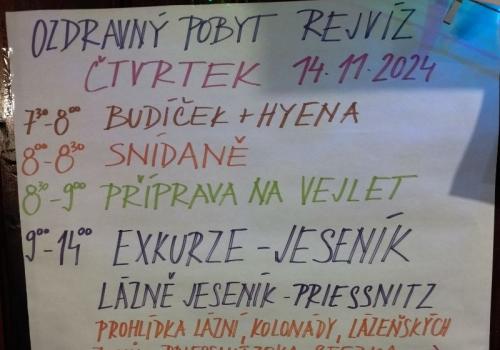 OZDRAVNÝ POBYT REJVÍZ
ČTVRTEK 14.11.2024
7³⁰-8⁰⁰ BUDÍČEK + HYENA
8⁰⁰-8³⁰ SNÍDANĚ
8³⁰-9⁰⁰ PŘÍPRAVA NA VEJLET
9⁰⁰-14⁰⁰ EXKURZE - JESENÍK
LÁZNĚ JESENÍK - PRIESSNITZ
PROHLÍDKA LÁZNÍ, KOLONÁDY, LÁZEŇSKÝCH